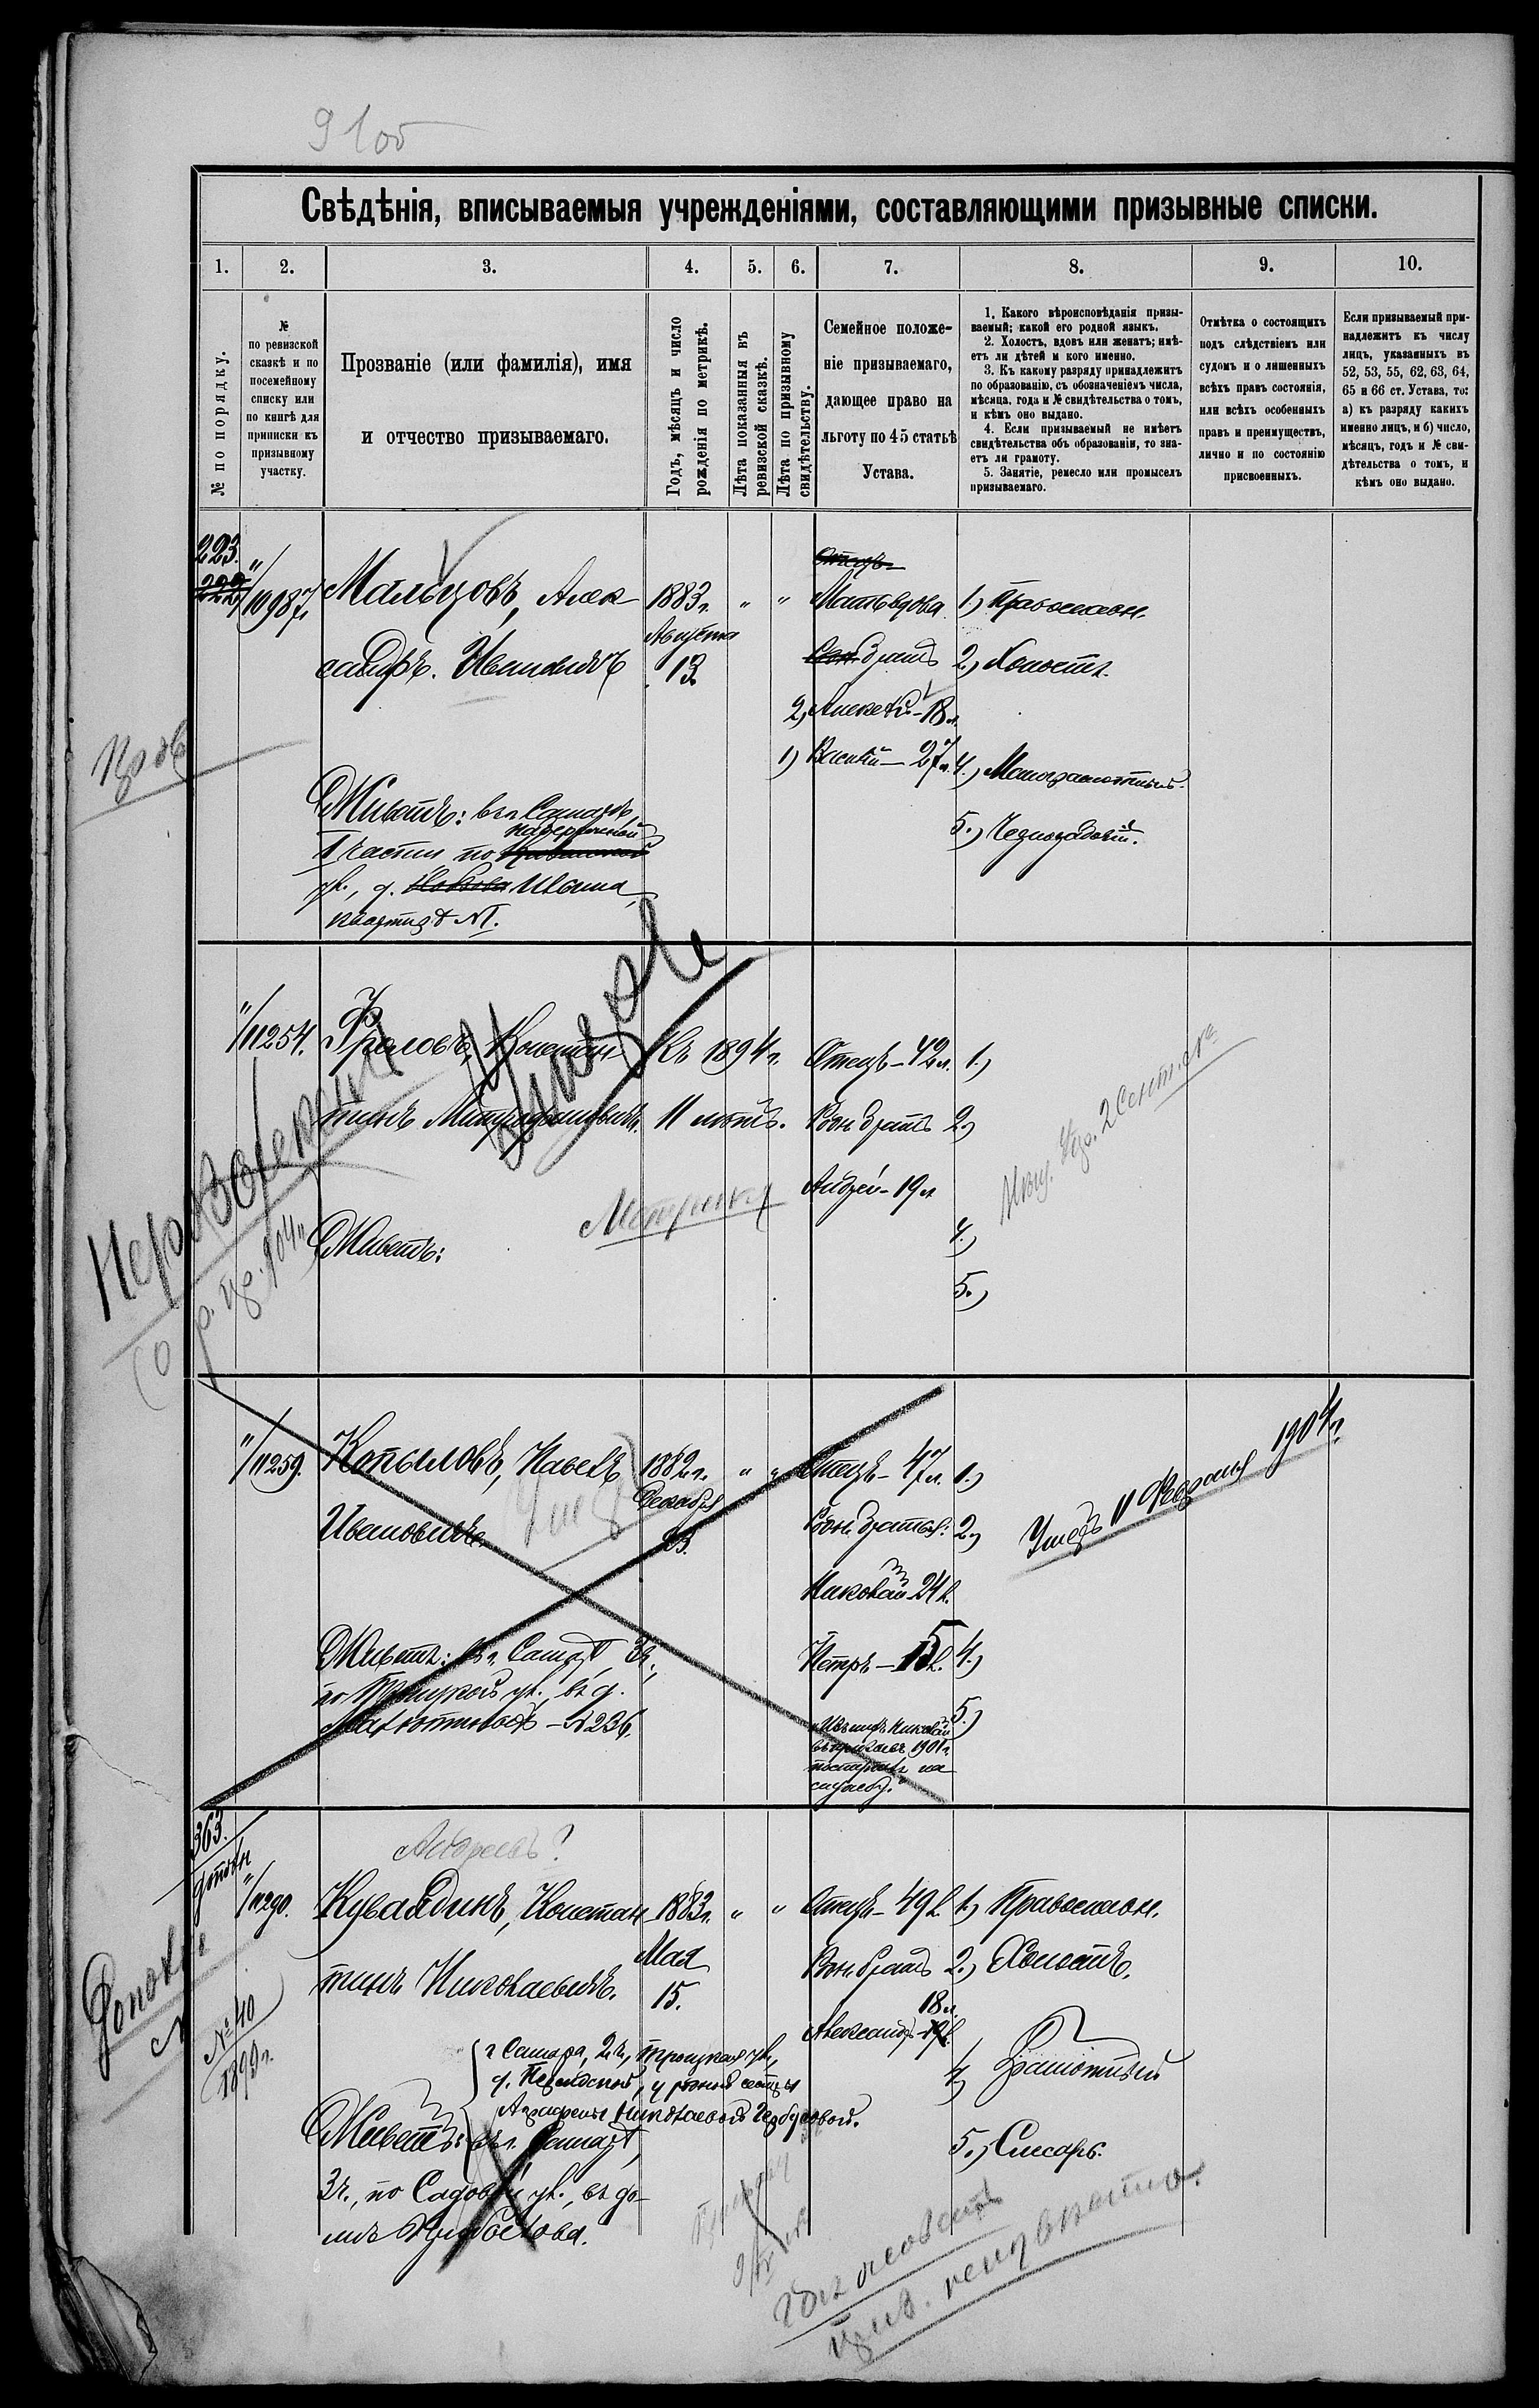 91об
Свѣдѣнія, вписываемыя учрежденіями, составляющими призывные списки.
1. 2. 3. 4. 5. 6. 7. 8. 9. 10.
№ по порядку.
№
по ревизской
сказкѣ и по
посемейному
списку или
по книгѣ для
приписки къ
призывному
участку.
Прозваніе (или фамилія), имя
и отчество призываемаго.
Годъ, мѣсяцъ и число
рожденія по метрикѣ.
Лѣта показанныя въ
ревизской сказкѣ.
Лѣта по призывному
свидѣтельству.
Семейное положе-
ніе призываемаго,
дающее право на
льготу по 45 статьѣ
Устава.
1. Какого вѣроисповѣданія призы-
ваемый; какой его родной языкъ.
2. Холостъ, вдовъ или женатъ; имѣ-
етъ ли дѣтей и кого именно.
3. Къ какому разряду принадлежитъ
по образованію, съ обозначеніемъ числа,
мѣсяца, года и № свидѣтельства о томъ,
и кѣмъ оно выдано.
4. Если призываемый не имѣетъ
свидѣтельства объ образованіи, то зна-
етъ ли грамоту.
5. Занятіе, ремесло или промыселъ
призываемаго.
Отмѣтка о состоящихъ
подъ слѣдствіемъ или
судомъ и о лишенныхъ
всѣхъ правъ состоянія,
или всѣхъ особенныхъ
правъ и преимуществъ,
лично и по состоянію
присвоенныхъ.
Если призываемый при-
надлежитъ къ числу
лицъ, указанныхъ въ
52, 53, 55, 62, 63, 64,
65 и 66 ст. Устава, то:
а) къ разряду какихъ
именно лицъ, и б) число,
мѣсяцъ, годъ и № сви-
дѣтельства о томъ, и
кѣмъ оно выдано.
223.
222
"/10987.
Мальцовъ, Алек-
сандръ. Ивановичъ
1883 г. " "
Августа
13.
Отецъ
Мать вдова
братъ
2) Алексѣй - 18 л.
1) Василій - 27 л.
1.) Православн.
2.) Холостъ.
4.) Малограмотный.
5.) Чернорабочій.
Живетъ: въ г. Самарѣ,
1 части, по набережной
ул., д. Ивлина,
квартира №1.
"/11254.
Фроловъ, Констан-
тинъ Митрофановичъ.
Къ 1894 г.
11 лѣтъ.
Отецъ - 42 л.
Родн. братъ
Андрей - 19 л.
1.)
2.)
4.)
5.)
Метрика
Живетъ:
"/11259.
Копыловъ, Павелъ
Ивановичъ.
1882 г. " "
Декабря
Отецъ - 47 л.
Родн. братья:
Николай 24 л.
Петръ - 15 л.
1.)
2.)
4.)
5.)
Умеръ 11 Февраля 1904 г.
Умеръ
Живетъ: въ г. Самарѣ, 3 ч.,
по Троицкой ул., въ д.
- № 236.
Изъ нихъ Николай
въ призывъ 1901 г.
поступилъ на
службу.
363.
"/11290.
Андреевъ?
Кувалдинъ, Констан-
тинъ Николаевичъ.
1883 г. " "
Мая
15.
Отецъ - 49 л.
Родн. братъ
18 л.
Александръ
1.) Православн.
2.) Холостъ.
4.) Грамотный
5.) Слесарь.
№ 40
1899 г.
г. Самара, 2 ч., Троицкая ул.,
у родной сестры
Николаевой
Живетъ: въ г. Самарѣ,
3 ч., по Садовой ул., въ до-
мѣ